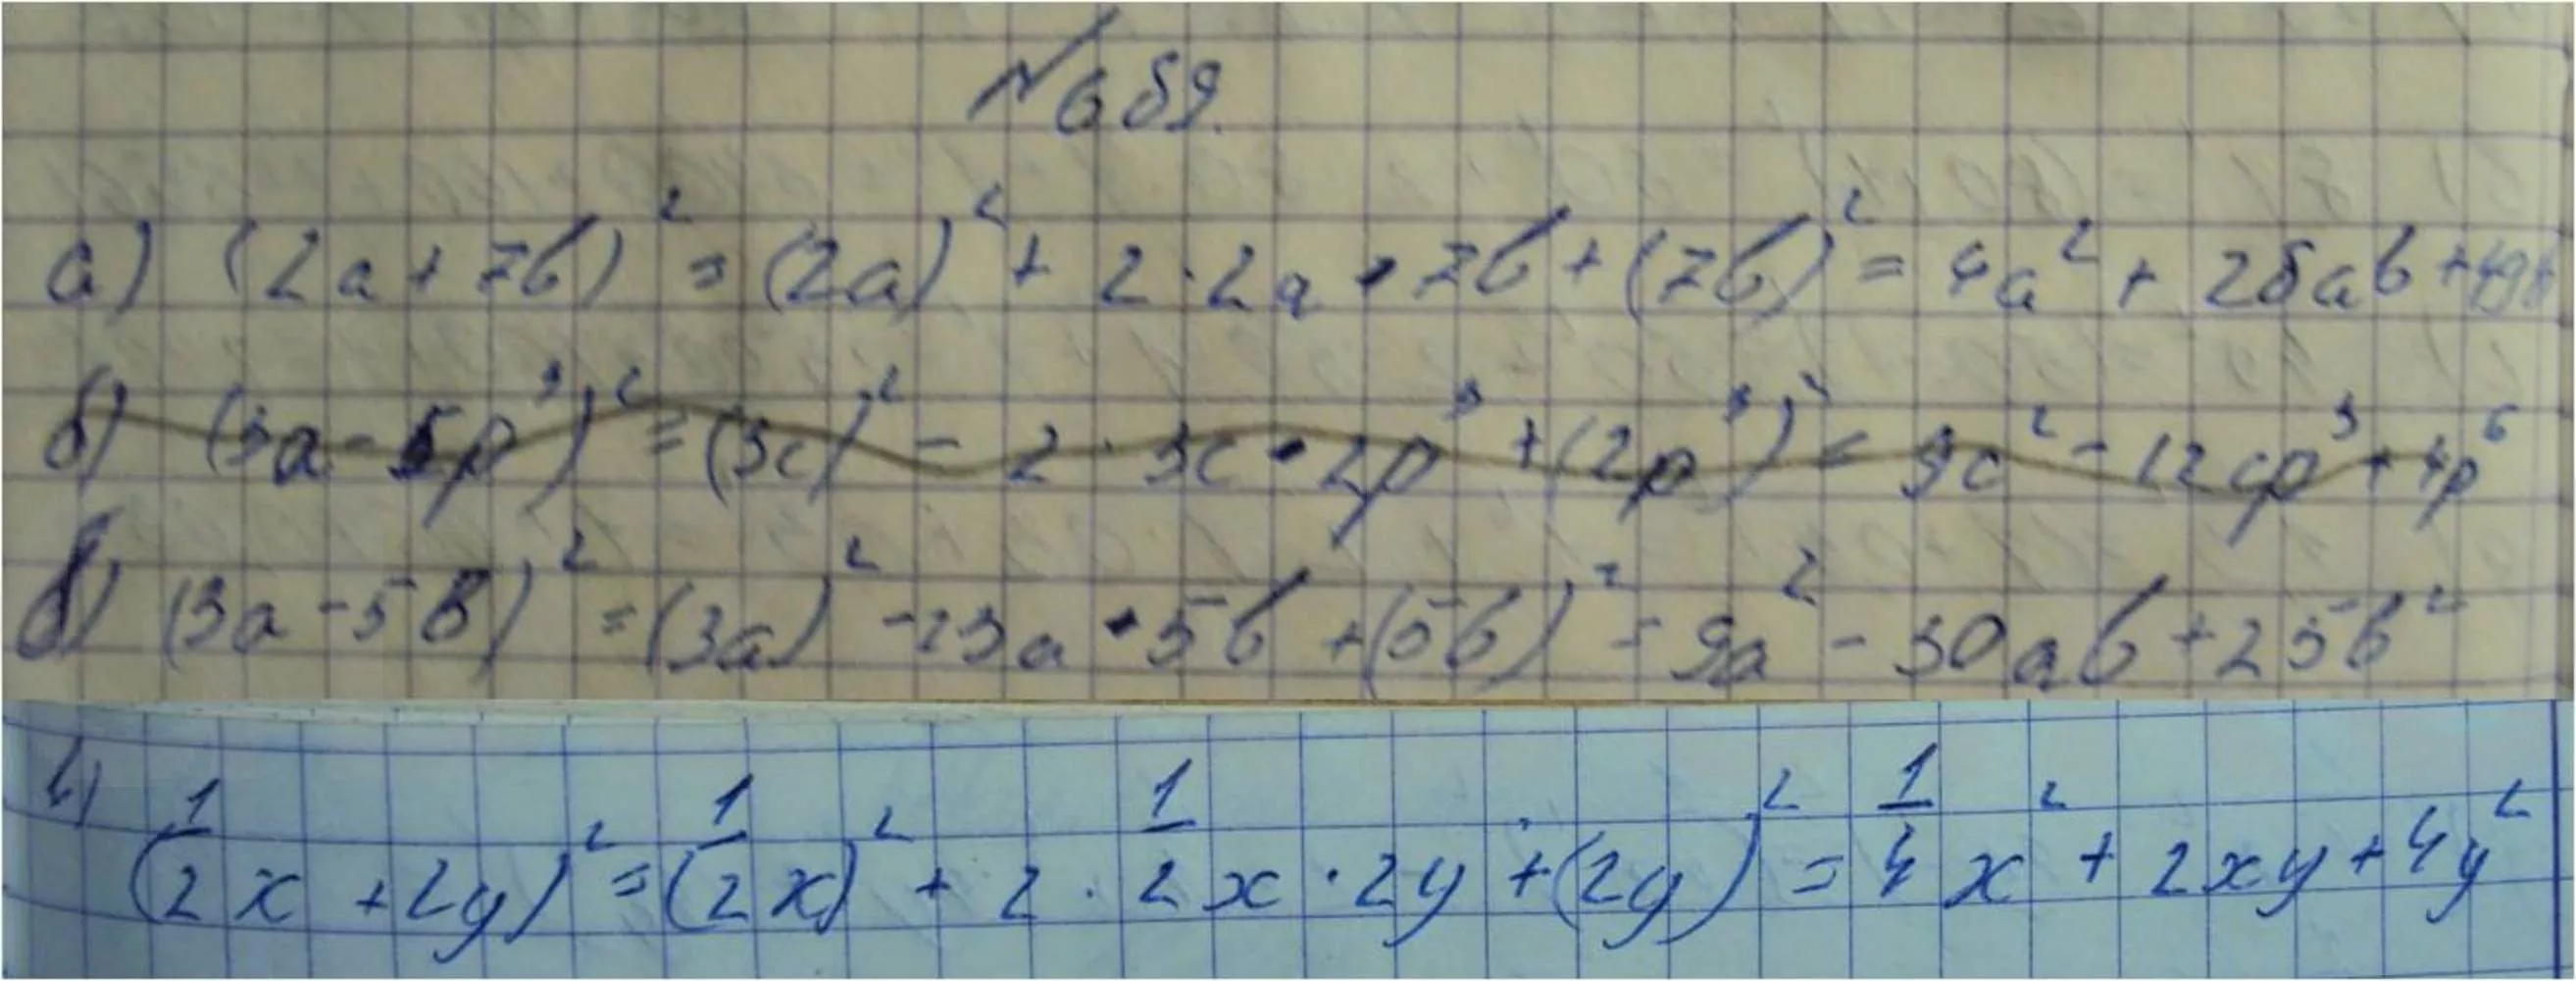 № 659.
а) (2a+7b)² = (2a)² + 2·2a·7b + (7b)² = 4a² + 28ab + 49b
б) (3a - 5p³)² = (3c)² - 2·3c·2p³ + (2p³)² = 9c² - 12cp³ + 4p⁶
б) (3a - 5b)² = (3a)² - 23a·5b + (5b)² = 9a² - 30ab + 25b²
(1/2x + 2y)² = (1/2x)² + 2·1/2x·2y + (2y)² = 1/4x² + 2xy + 4y²